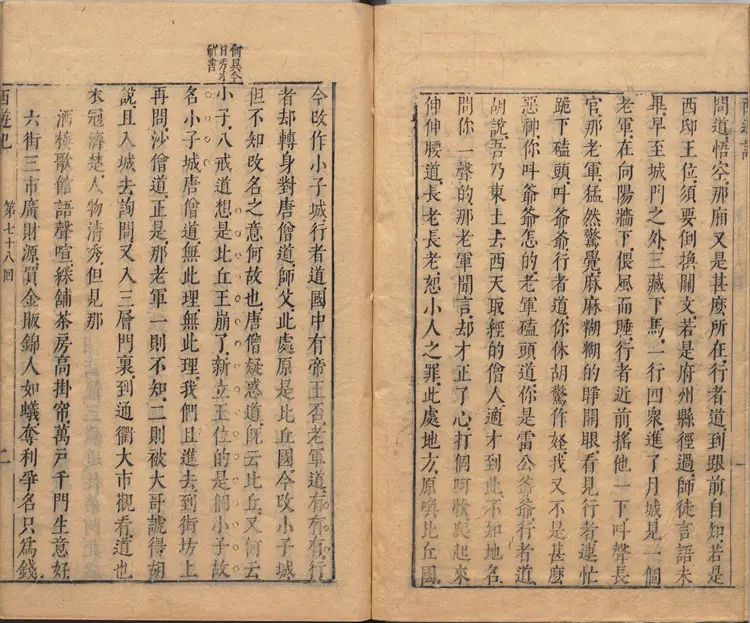 問道悟空那廂又是甚麼所在行者道到跟前自知若是
西邸王位須要倒換關文若是府州縣徑過師徒言語未
畢早至城門之外三藏下馬一行四衆進了月城見一個
老軍在向陽牆下偎風而睡行者近前搖他一下叫聲長
官那老軍猛然驚覺麻麻糊糊的睜開眼看見行者連忙
跪下磕頭叫爺爺行者道你休胡驚作怪我又不是甚麼
惡神你叫爺爺怎的老軍磕頭道你是雷公爺爺行者道
胡說吾乃東土去西天取經的僧人適才到此不知地名
問你一聲的那老軍聞言却才正了心打個呵欠爬起來
伸伸腰道長老長老恕小人之罪此處地方原喚比丘國
今改作小子城行者道國中有帝王否老軍道有有有行
者却轉身對唐僧道師父此處原是比丘國今改小子城
但不知改名之意何故也唐僧疑惑道既云比丘又何云
何異今
日秀才
解書
小子八戒道想是比丘王崩了新立王位的是個小子故
名小子城唐僧道無此理無此理我們且進去到街坊上
再問沙僧道正是那老軍一則不知二則被大哥諕得胡
說且入城去詢問又入三層門裏到通衢大市觀看道也
衣冠濟楚人物清秀但見那
酒樓歌館語聲喧綵鋪茶房高掛帘萬戶千門生意好
六街三市廣財源買金販錦人如蟻奪利爭名只為錢
西遊記 第七十八回 二